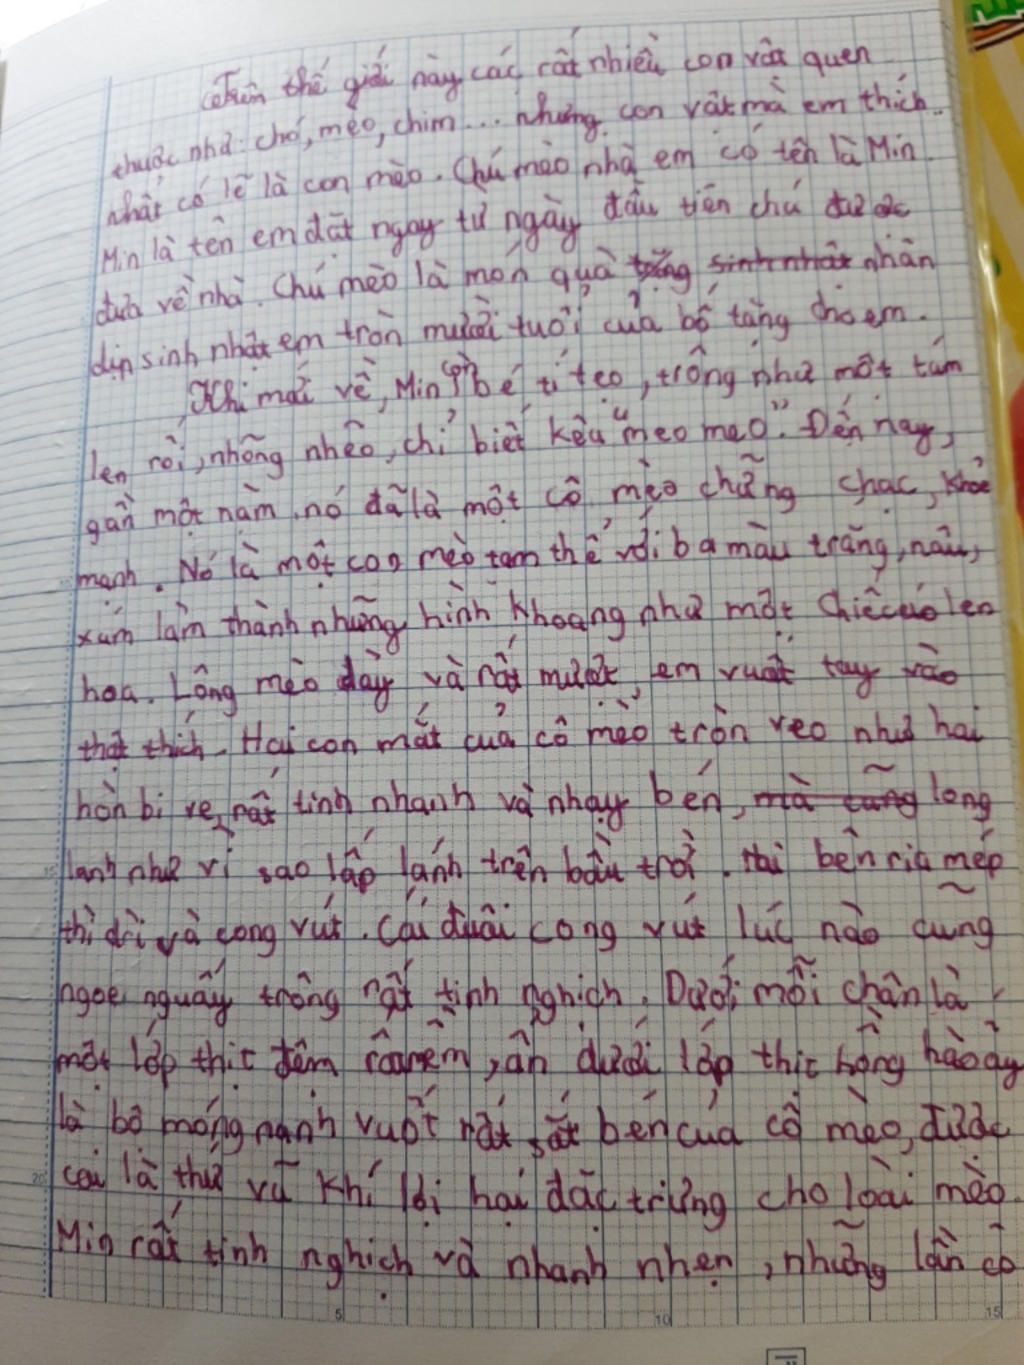 Trên thế giới này các rất nhiều con vật quen
thuộc như: chó, mèo, chim... nhưng con vật mà em thích
nhất có lẽ là con mèo. Chú mèo nhà em có tên là Min.
Min là tên em đặt ngay từ ngày đầu tiên chú được
đưa về nhà. Chú mèo là món quà tặng sinh nhật nhân
dịp sinh nhật em tròn mười tuổi của bố tặng cho em.
Khi mới về, Min còn bé tí tẹo, trông như một tấm
len rối, nhõng nhẽo, chỉ biết kêu "meo meo". Đến nay,
gần một năm, nó đã là một cô mèo chững chạc, khoẻ
mạnh. Nó là một con mèo tam thể với ba màu trắng, nâu,
xám làm thành những hình khoang như một chiếc áo len
hoa. Lông mèo dày và rất mượt, em vuốt tay vào
thật thích. Hai con mắt của cô mèo tròn xeo như hai
hòn bi ve, rất tinh nhanh và nhạy bén, mà cũng long
lanh như vì sao lấp lánh trên bầu trời. Hai bên ria mép
thì dài và cong vút. Cái đuôi cong vút lúc nào cũng
ngoe nguẩy trông rất tinh nghịch. Dưới mỗi chân là
một lớp thịt đệm êm, ẩn dưới lớp thịt hồng hào ấy
là bộ móng nanh vuốt rất sắt bén của cô mèo, được
coi là thứ vũ khí lợi hại đặc trưng cho loài mèo.
Min rất tinh nghịch và nhanh nhẹn, những lần có
5
10
15
20